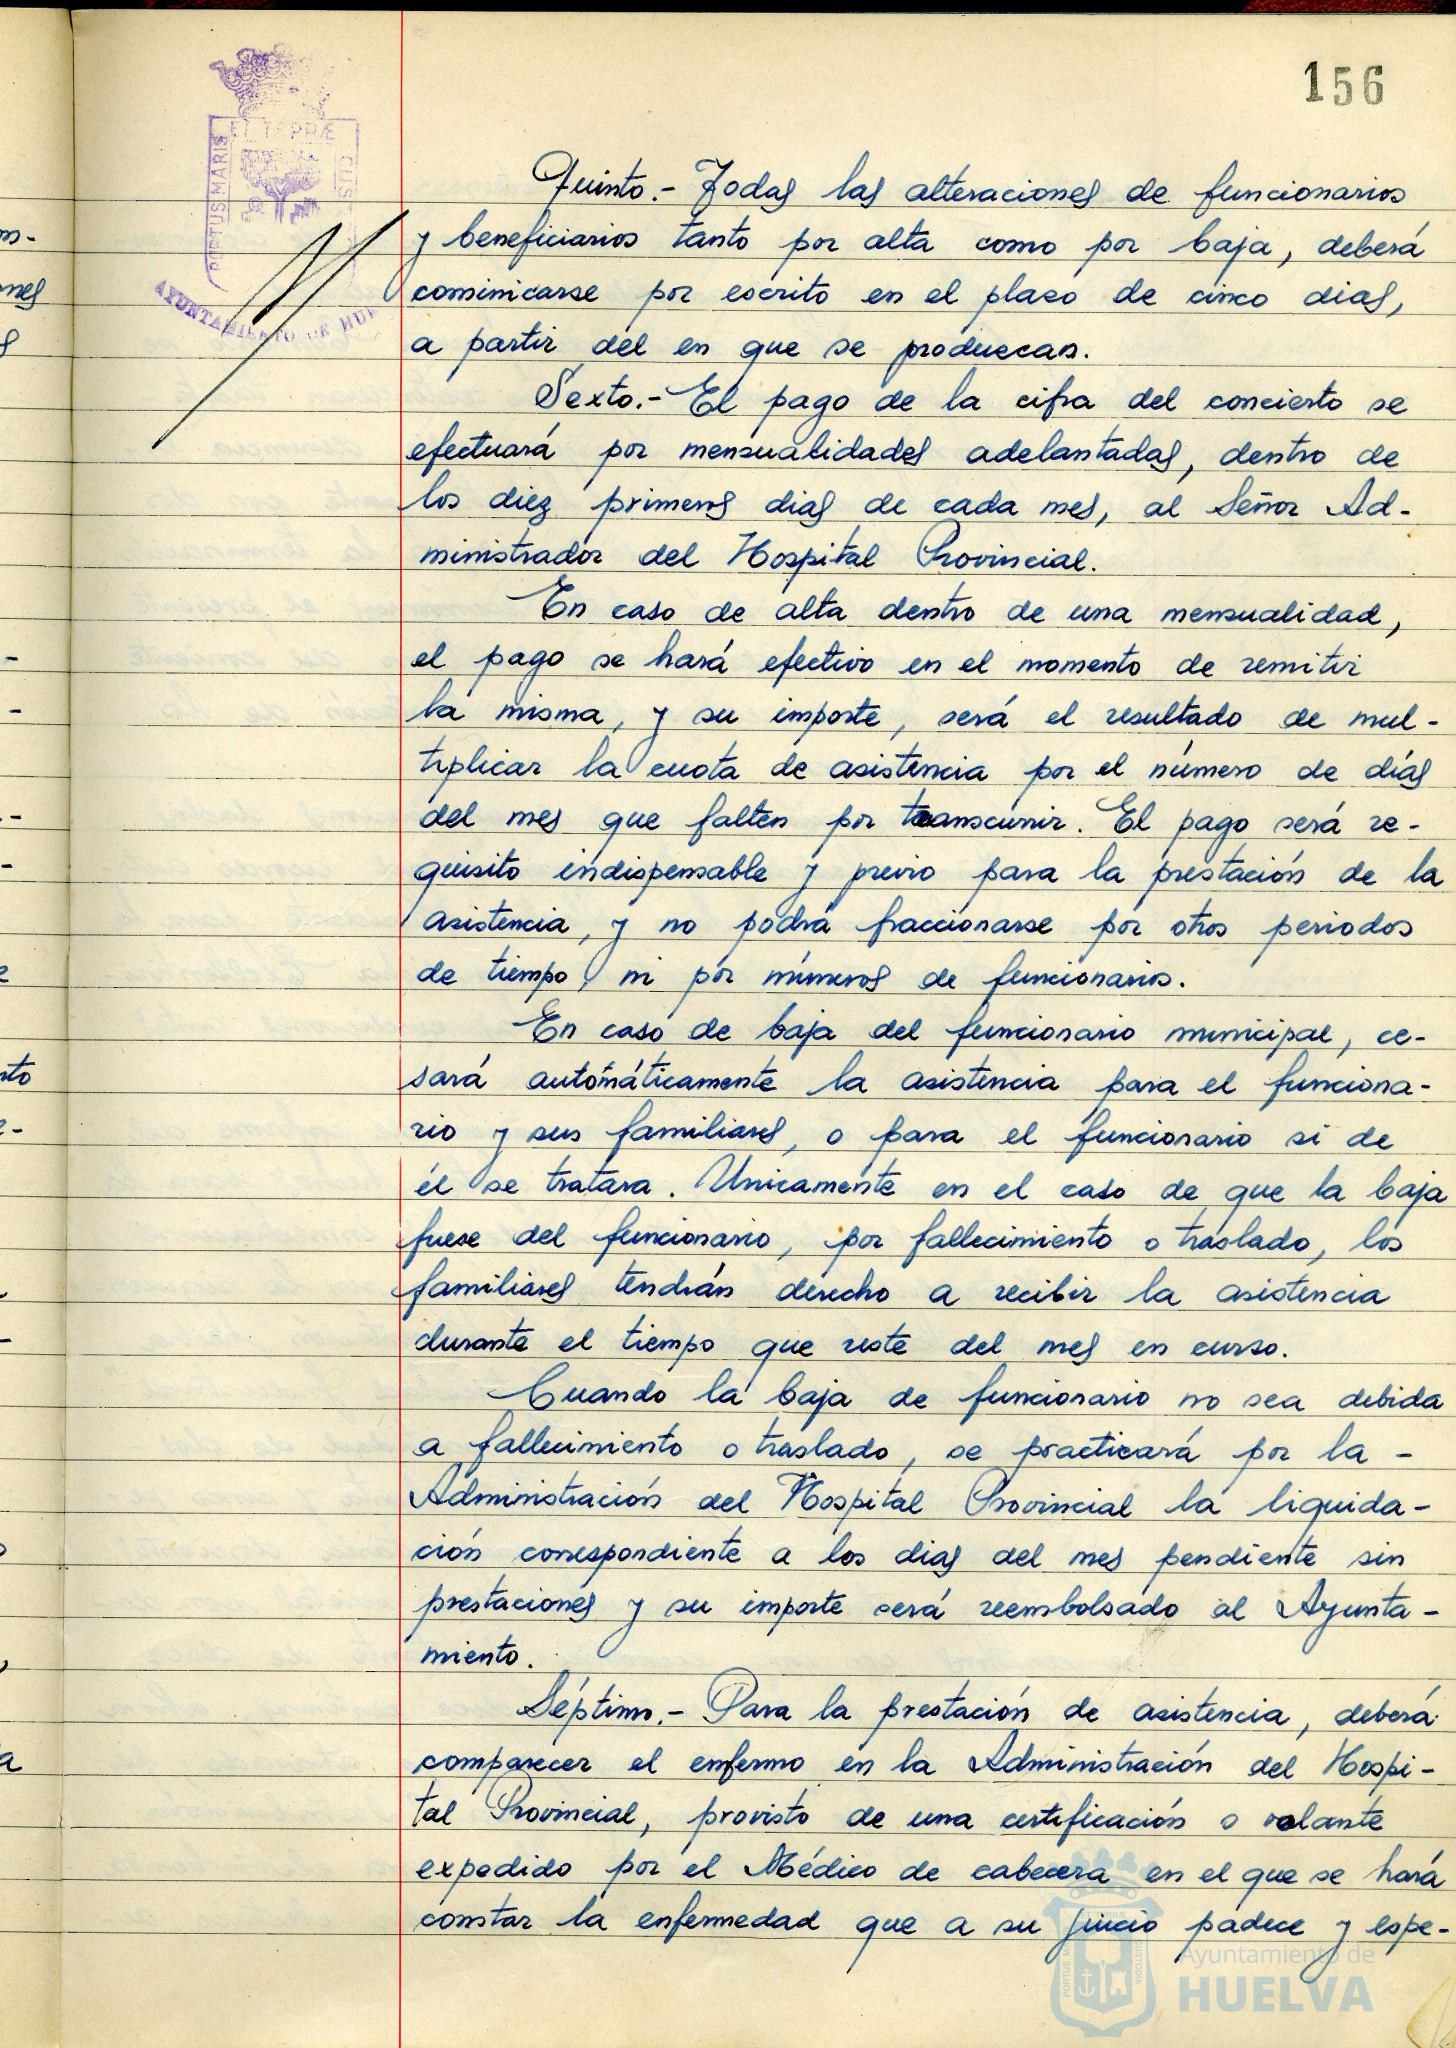 156
ET TERRÆ
PORTUS MARIS
CUS
AYUNTAMIENTO DE HUE
Quinto.- Todas las alteraciones de funcionarios
y beneficiarios tanto por alta como por baja, deberá
cominicarse por escrito en el plazo de cinco dias,
a partir del en que se produzcan.
Sexto.- El pago de la cifra del concierto se
efectuará por mensualidades adelantadas, dentro de
los diez primeros dias de cada mes, al Señor Ad-
ministrador del Hospital Provincial.
En caso de alta dentro de una mensualidad,
el pago se hará efectivo en el momento de remitir
la misma, y su importe, será el resultado de mul-
tiplicar la cuota de asistencia por el número de días
del mes que falten por transcurrir. El pago será re-
quisito indispensable y previo para la prestación de la
asistencia, y no podrá fraccionarse por otros periodos
de tiempo, ni por números de funcionarios.
En caso de baja del funcionario municipal, ce-
sará automáticamente la asistencia para el funciona-
rio y sus familiares, o para el funcionario si de
él se tratara. Unicamente en el caso de que la baja
fuese del funcionario, por fallecimiento o traslado, los
familiares tendrán derecho a recibir la asistencia
durante el tiempo que reste del mes en curso.
Cuando la baja de funcionario no sea debida
a fallecimiento o traslado, se practicará por la -
Administración del Hospital Provincial la liquida-
ción correspondiente a los dias del mes pendiente sin
prestaciones y su importe será reembolsado al Ayunta-
miento.
Séptimo.- Para la prestación de asistencia, deberá
comparecer el enfermo en la Administración del Hospi-
tal Provincial, provisto de una certificación o volante
expedido por el Médico de cabecera en el que se hará
constar la enfermedad que a su juicio padece y espe-
Ayuntamiento de
HUELVA